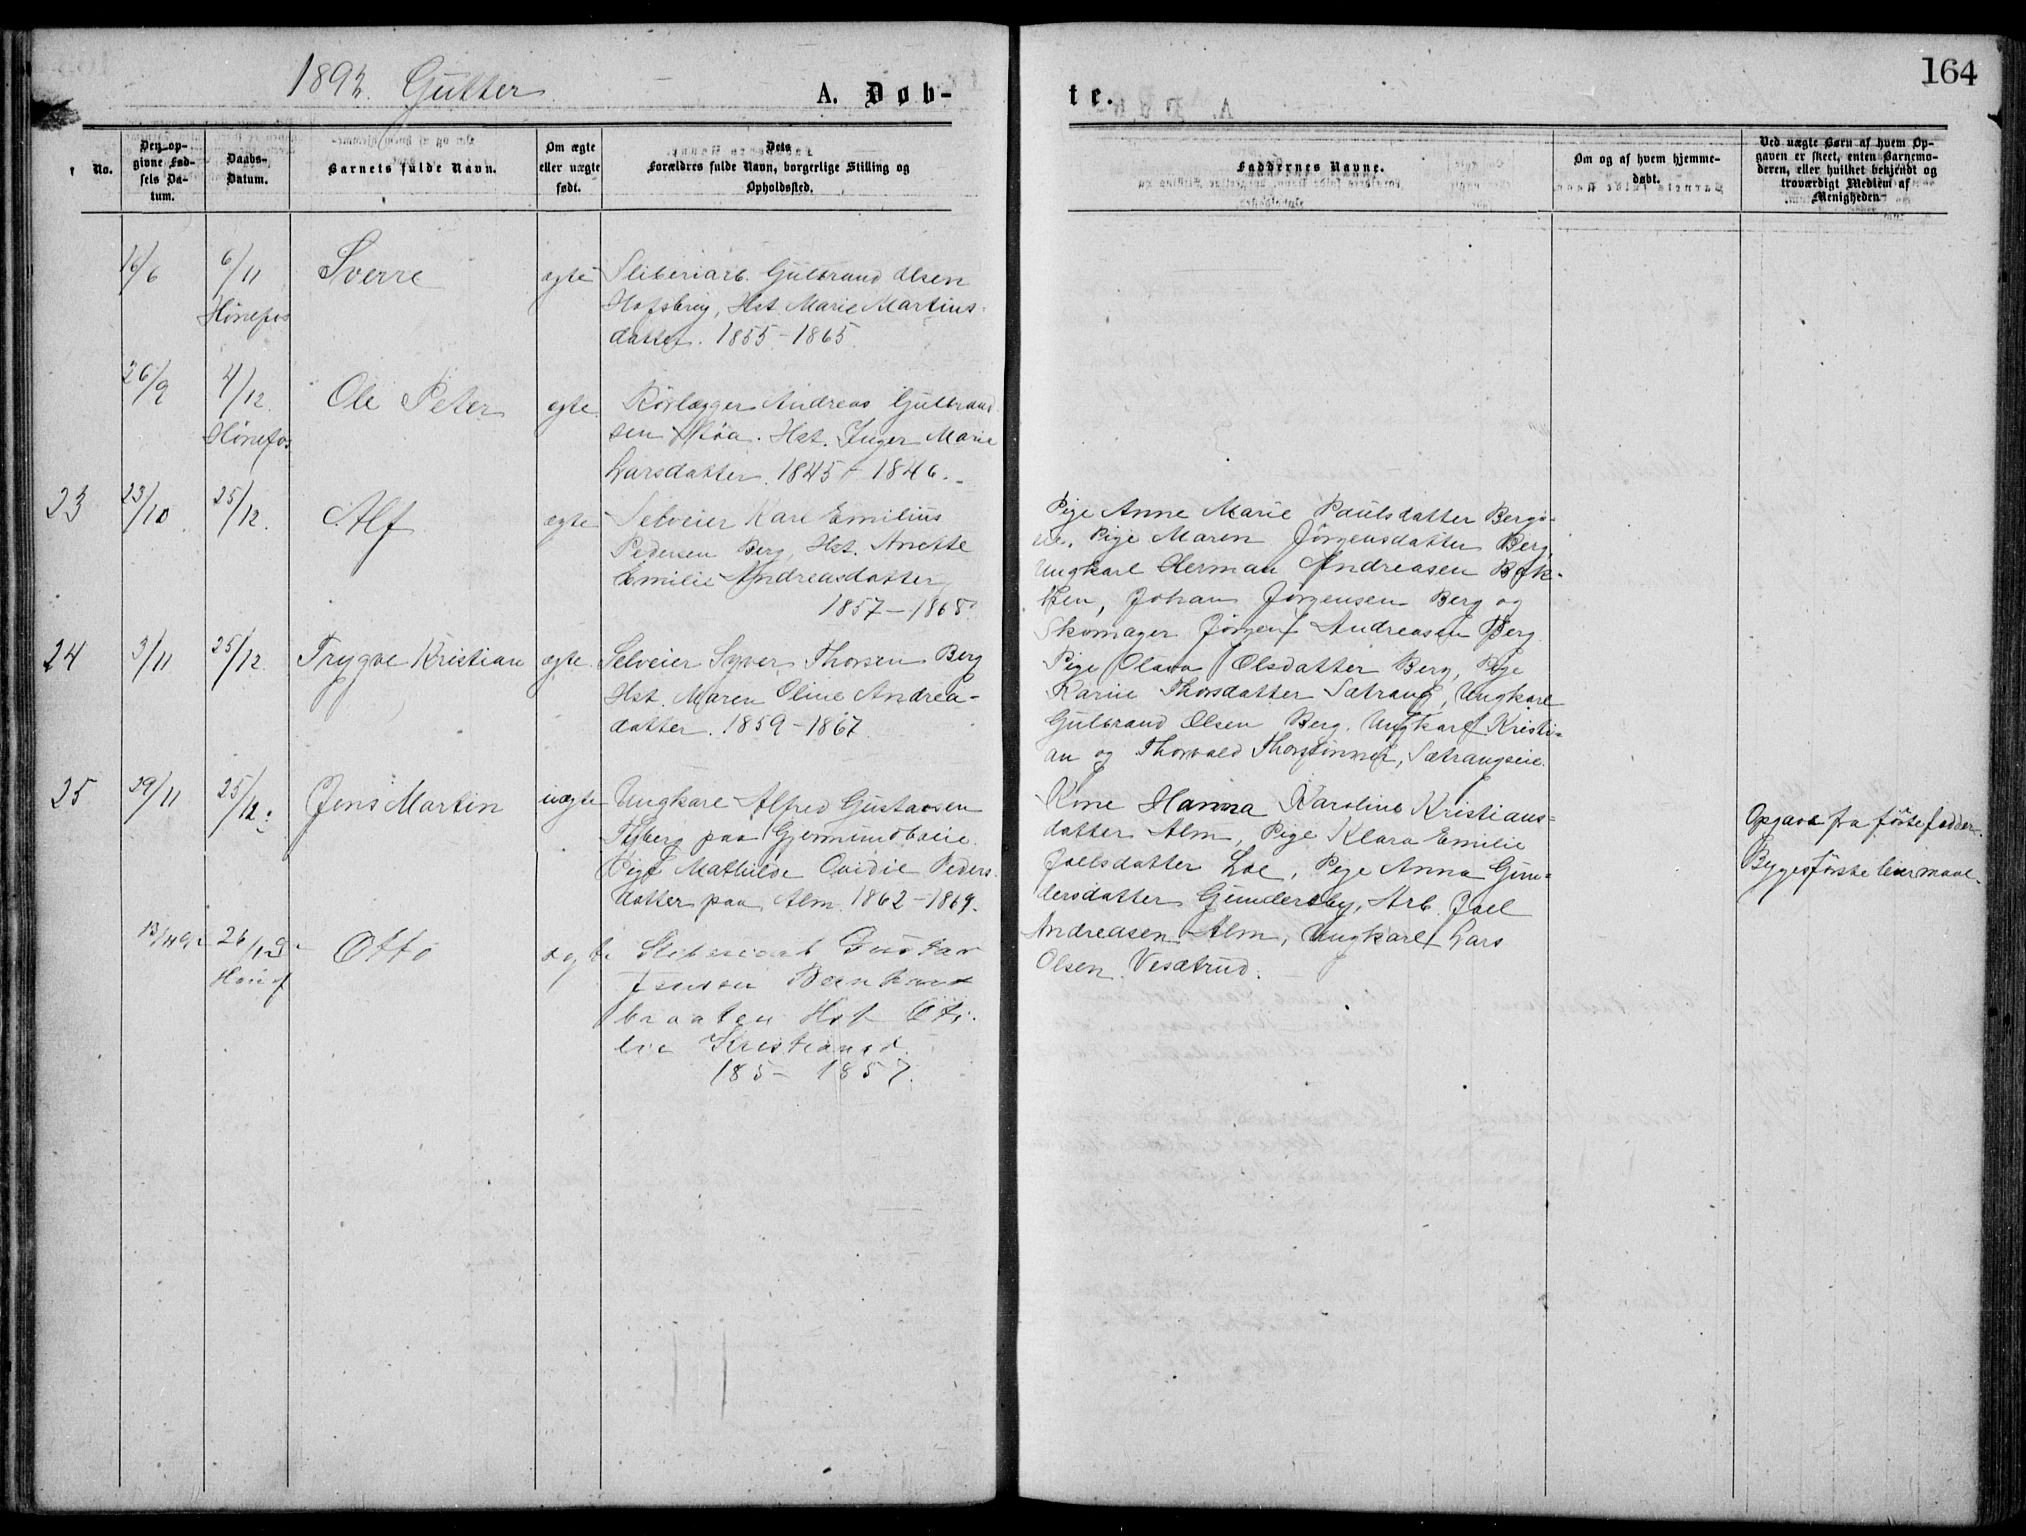 1892. Gutter
A. Døb-
te.
164
No.
Den op-
givne Fød-
sels Da-
tum.
Daabs-
Datum.
Barnets fulde Navn.
Om ægte
eller uægte
født.
Dets
Forældres fulde Navn, borgerlige Stilling og
Opholdssted.
Faddernes Navne.
Om og af hvem hjemme-
døbt.
Ved uægte Børn af hvem Op-
gaven er skeet, enten Barnemo-
deren, eller hvilket bekjendt og
troværdigt Medlem af
Menigheden
16/6 6/11 Sverre ægte Sliberiarb. Gulbrand Olsen
Hønefos Hofsbrug, Hst. Marie Martins-
datter. 1855-1865
26/9 4/12 Ole Peter ægte Rørlægger Andreas Gulbrand
Hønefos sen Moa. Hst. Inger Marie
Larsdatter. 1845 - 1846.
23 23/10 25/12. Alf ægte Selveier Karl Emilius
Pedersen Berg, Hst. Anette
Emilie Andreasdatter
1857-1868.
Pige Anne Marie Paulsdatter Berg-
eie. Pige Maren Jørgensdatter Berg,
Ungkarl Herman Andreasen Bak-
ken, Johan Jørgensen Berg og
Skomager Jørgen Andreasen Berg.
24 3/11 25/12. Trygve Kristian ægte Selveier Syver Thorsen Berg
Hst. Maren Oline Andrea-
datter. 1859-1867.
Pige Olava Olsdatter Berg, Pige
Karine Thorsdatter Sætrang, Ungkarl
Gulbrand Olsen Berg. Ungkarl Kristi-
an og Thorvald Sætrangseie.
25 29/11 25/12. Jens Martin uægte Ungkarl Alfred Gustavsen
Fjberg paa Gjermundboeie.
Pige Mathilde Ovidie Peders-
datter paa Alm. 1862-1869.
Kone Hanna Karoline Kristians-
datter Alm, Pige Klara Emilie
Joelsdatter Loe, Pige Anna Gun-
dersdatter Gundersby, Arb. Joel
Andreasen Alm, Ungkarl Lars
Olsen Vesætrud.
Opgave fra første fadder.
Begges første leiermaal.
13/11 92 26/12 92 Otto ægte Sliberiarb Gustav
Hønef Jensen Bernhard
braaten Hst Oti-
lie Kristiansd.
185- 1857.